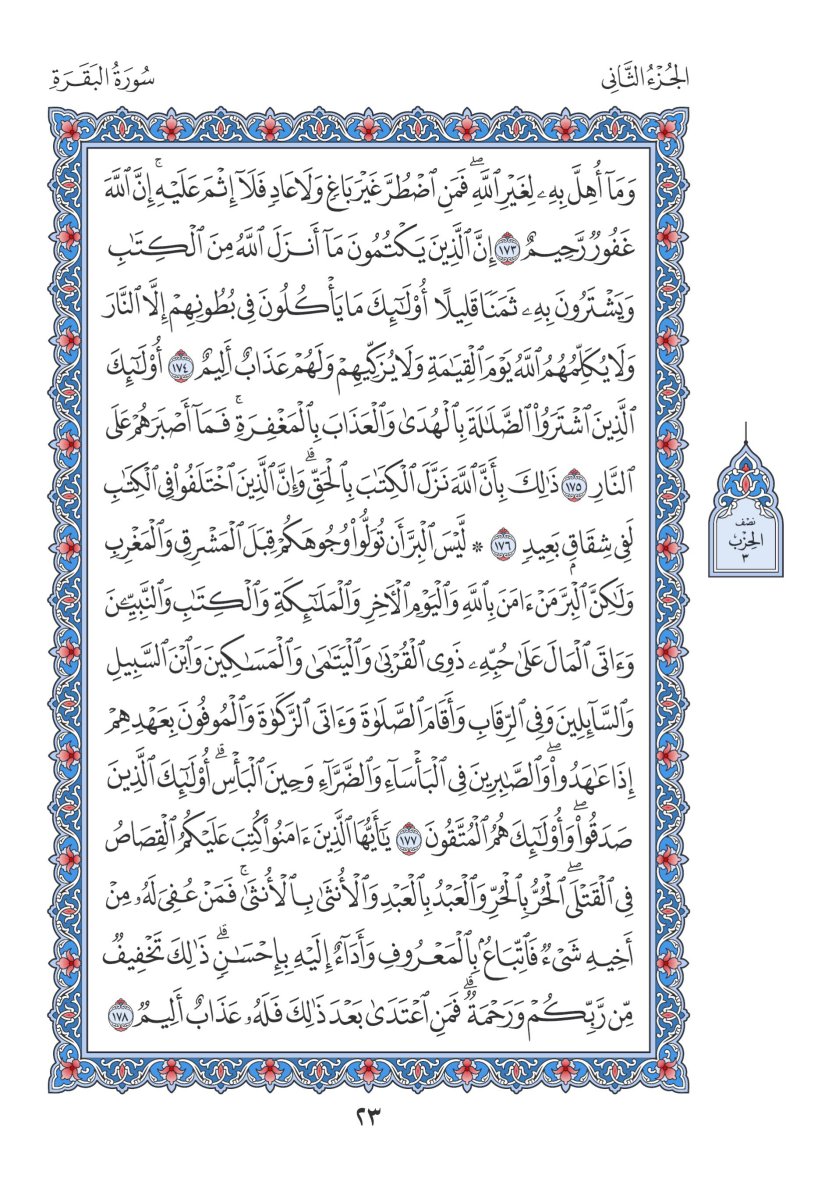 الجُزْءُ الثَّانِي
سُورَةُ البَقَرَةِ
وَمَآ أُهِلَّ بِهِۦ لِغَيْرِ ٱللَّهِۖ فَمَنِ ٱضْطُرَّ غَيْرَ بَاغٖ وَلَا عَادٖ فَلَآ إِثْمَ عَلَيْهِۚ إِنَّ ٱللَّهَ
غَفُورٞ رَّحِيمٌ ١٧٣ إِنَّ ٱلَّذِينَ يَكْتُمُونَ مَآ أَنزَلَ ٱللَّهُ مِنَ ٱلْكِتَٰبِ
وَيَشْتَرُونَ بِهِۦ ثَمَنٗا قَلِيلًا أُوْلَٰٓئِكَ مَا يَأْكُلُونَ فِي بُطُونِهِمْ إِلَّا ٱلنَّارَ
وَلَا يُكَلِّمُهُمُ ٱللَّهُ يَوْمَ ٱلْقِيَٰمَةِ وَلَا يُزَكِّيهِمْ وَلَهُمْ عَذَابٌ أَلِيمٌ ١٧٤ أُوْلَٰٓئِكَ
ٱلَّذِينَ ٱشْتَرَوُاْ ٱلضَّلَٰلَةَ بِٱلْهُدَىٰ وَٱلْعَذَابَ بِٱلْمَغْفِرَةِۚ فَمَآ أَصْبَرَهُمْ عَلَى
ٱلنَّارِ ١٧٥ ذَٰلِكَ بِأَنَّ ٱللَّهَ نَزَّلَ ٱلْكِتَٰبَ بِٱلْحَقِّۗ وَإِنَّ ٱلَّذِينَ ٱخْتَلَفُواْ فِي ٱلْكِتَٰبِ
لَفِي شِقَاقِۭ بَعِيدٖ ١٧٦ * لَّيْسَ ٱلْبِرَّ أَن تُوَلُّواْ وُجُوهَكُمْ قِبَلَ ٱلْمَشْرِقِ وَٱلْمَغْرِبِ
وَلَٰكِنَّ ٱلْبِرَّ مَنْ ءَامَنَ بِٱللَّهِ وَٱلْيَوْمِ ٱلْأٓخِرِ وَٱلْمَلَٰٓئِكَةِ وَٱلْكِتَٰبِ وَٱلنَّبِيِّـۧنَ
وَءَاتَى ٱلْمَالَ عَلَىٰ حُبِّهِۦ ذَوِي ٱلْقُرْبَىٰ وَٱلْيَتَٰمَىٰ وَٱلْمَسَٰكِينَ وَٱبْنَ ٱلسَّبِيلِ
وَٱلسَّآئِلِينَ وَفِي ٱلرِّقَابِ وَأَقَامَ ٱلصَّلَوٰةَ وَءَاتَى ٱلزَّكَوٰةَ وَٱلْمُوفُونَ بِعَهْدِهِمْ
إِذَا عَٰهَدُواْۖ وَٱلصَّٰبِرِينَ فِي ٱلْبَأْسَآءِ وَٱلضَّرَّآءِ وَحِينَ ٱلْبَأْسِۗ أُوْلَٰٓئِكَ ٱلَّذِينَ
صَدَقُواْۖ وَأُوْلَٰٓئِكَ هُمُ ٱلْمُتَّقُونَ ١٧٧ يَٰٓأَيُّهَا ٱلَّذِينَ ءَامَنُواْ كُتِبَ عَلَيْكُمُ ٱلْقِصَاصُ
فِي ٱلْقَتْلَىۖ ٱلْحُرُّ بِٱلْحُرِّ وَٱلْعَبْدُ بِٱلْعَبْدِ وَٱلْأُنثَىٰ بِٱلْأُنثَىٰۚ فَمَنْ عُفِيَ لَهُۥ مِنْ
أَخِيهِ شَيْءٞ فَٱتِّبَاعُۢ بِٱلْمَعْرُوفِ وَأَدَآءٌ إِلَيْهِ بِإِحْسَٰنٖۗ ذَٰلِكَ تَخْفِيفٞ
مِّن رَّبِّكُمْ وَرَحْمَةٞۗ فَمَنِ ٱعْتَدَىٰ بَعْدَ ذَٰلِكَ فَلَهُۥ عَذَابٌ أَلِيمٌ ١٧٨
نصف
الحزب
٣
٢٣